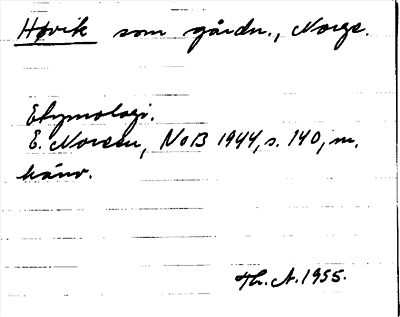 Høvik som gårdn., Norge.
Etymologi.
E. Noreen, NoB 1944, s. 140, m.
hänv.
Th. A. 1955.